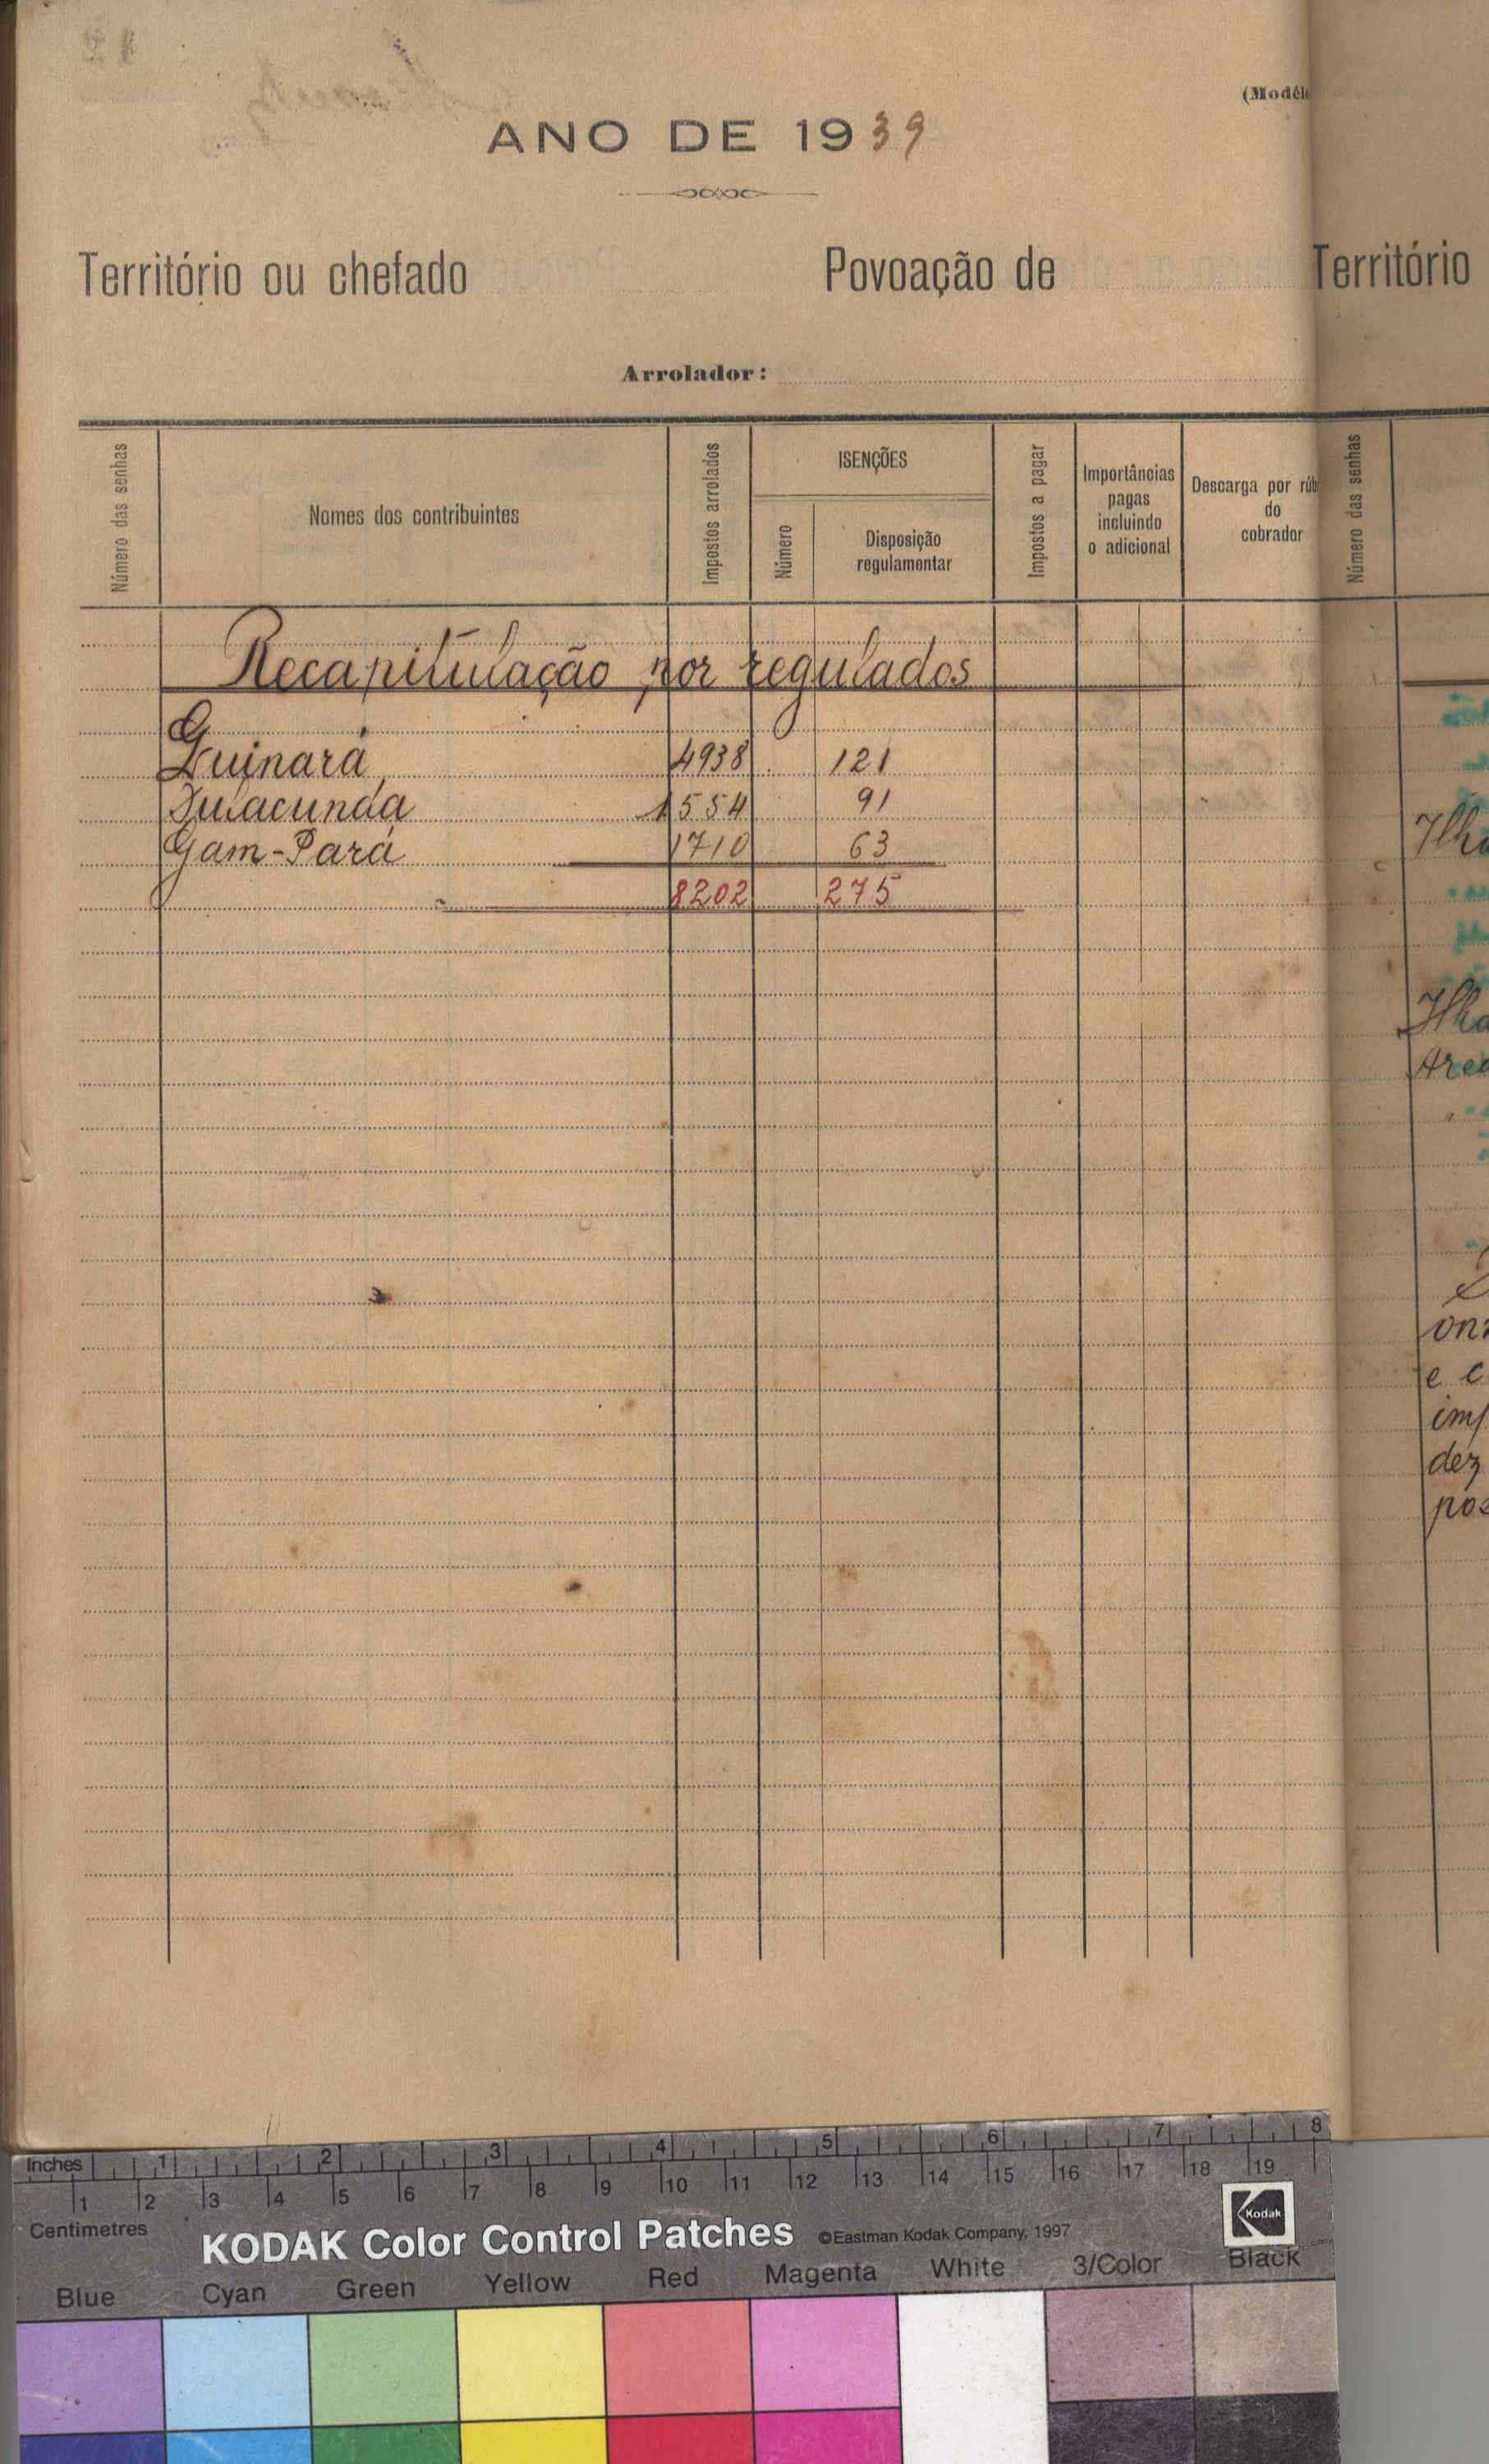 (Modêl
ANO DE 1939
Território ou chefado
Povoação de
Território
Arrolador:
Número das senhas
Nomes dos contribuintes
Impostos arrolados
ISENÇÕES
Número
Disposição
regulamentar
Impostos a pagar
Importâncias
pagas
incluindo
o adicional
Descarga por rúb
do
cobrador
Número das senhas
Recapitulação por regulados
Guinará 4938 121
Fulacunda 1554 91
Gam-Pará 1710 63
8202 275
Ilha
Ilha
Are
on
e c
imp
dez
pos
Inches 1 2 3 4 5 6 7 8
1 2 3 4 5 6 7 8 9 10 11 12 13 14 15 16 17 18 19
Centimetres
KODAK Color Control Patches ©Eastman Kodak Company, 1997
Kodak
Blue Cyan Green Yellow Red Magenta White 3/Color Black